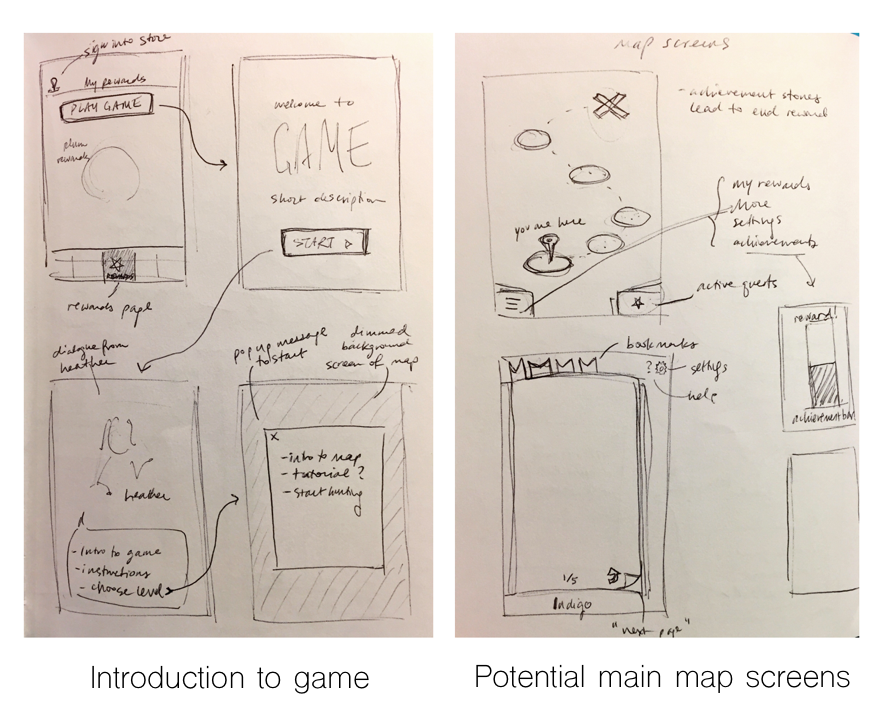 sign into store
My rewards
PLAY GAME
plum
rewards
REWARDS
rewards page
welcome to
GAME
short description
START
dialogue from
heather
heather
- intro to game
- instructions
- choose level
pop up message
to start
dimmed
background
screen of map
x
- intro to map
- tutorial?
- start hunting
Map screens
- achievement stones
lead to end reward
you are here
my rewards
More
settings
achievements
active quests
reward!
achievement bar
bookmarks
? settings
help
1/5
Indigo
"next page"
Introduction to game
Potential main map screens